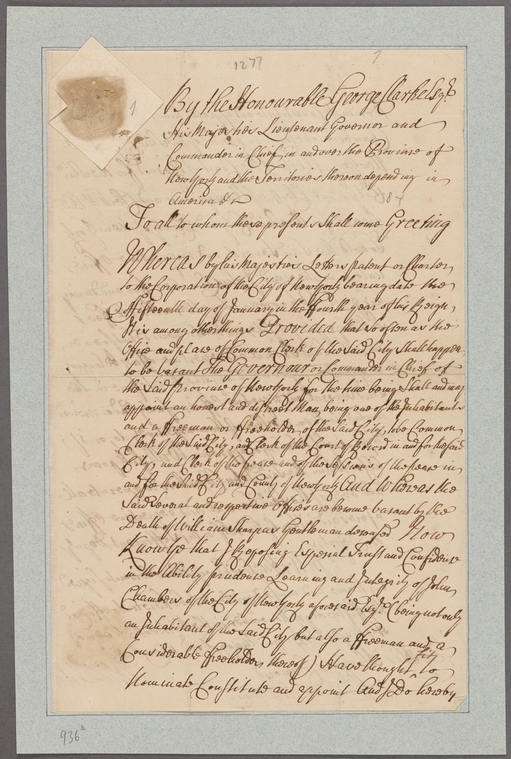 1277
1
1
By the Honourable George Clarke Esqr.
His Majesties Lieutenant Governor and
Commander in Chief in and over the Province of
New York and the Territories thereon depending in
America &c
To all to whom these presents Shall come Greeting
Whereas by his Majesties Letters Patent or Charter
to the Corporation of the City of New York bearing date the
fifteenth day of January in the Fourth year of his Reign
It is among other things Provided that so often as the
Office and place of Common Clerk of the Said City Shall happen
to be vacant The Governour or Commander in Chief of
the Said Province of New York for the time being Shall and may
appoint an honest and discreet Man, being one of the Inhabitants
and a Freeman or Freeholder of the Said City, to be Common
Clerk of the Said City, and Clerk of the Court of Record in and for the said
City, and Clerk of the peace and of the Sessions of the peace in
and for the Said City and County of New York And Whereas the
Said Several and respective Offices are become vacant by the
Death of William Sharpas Gentleman deceased Now
Know ye that I Reposing Especial Trust and Confidence
in the Ability prudence Learning and Integrity of John
Chambers of the City of New York aforesaid Esqr. (being not only
an Inhabitant of the Said City but also a Freeman and a
Considerable Freeholder thereof) Have thought fit to
Nominate Constitute and appoint And I Do hereby
936